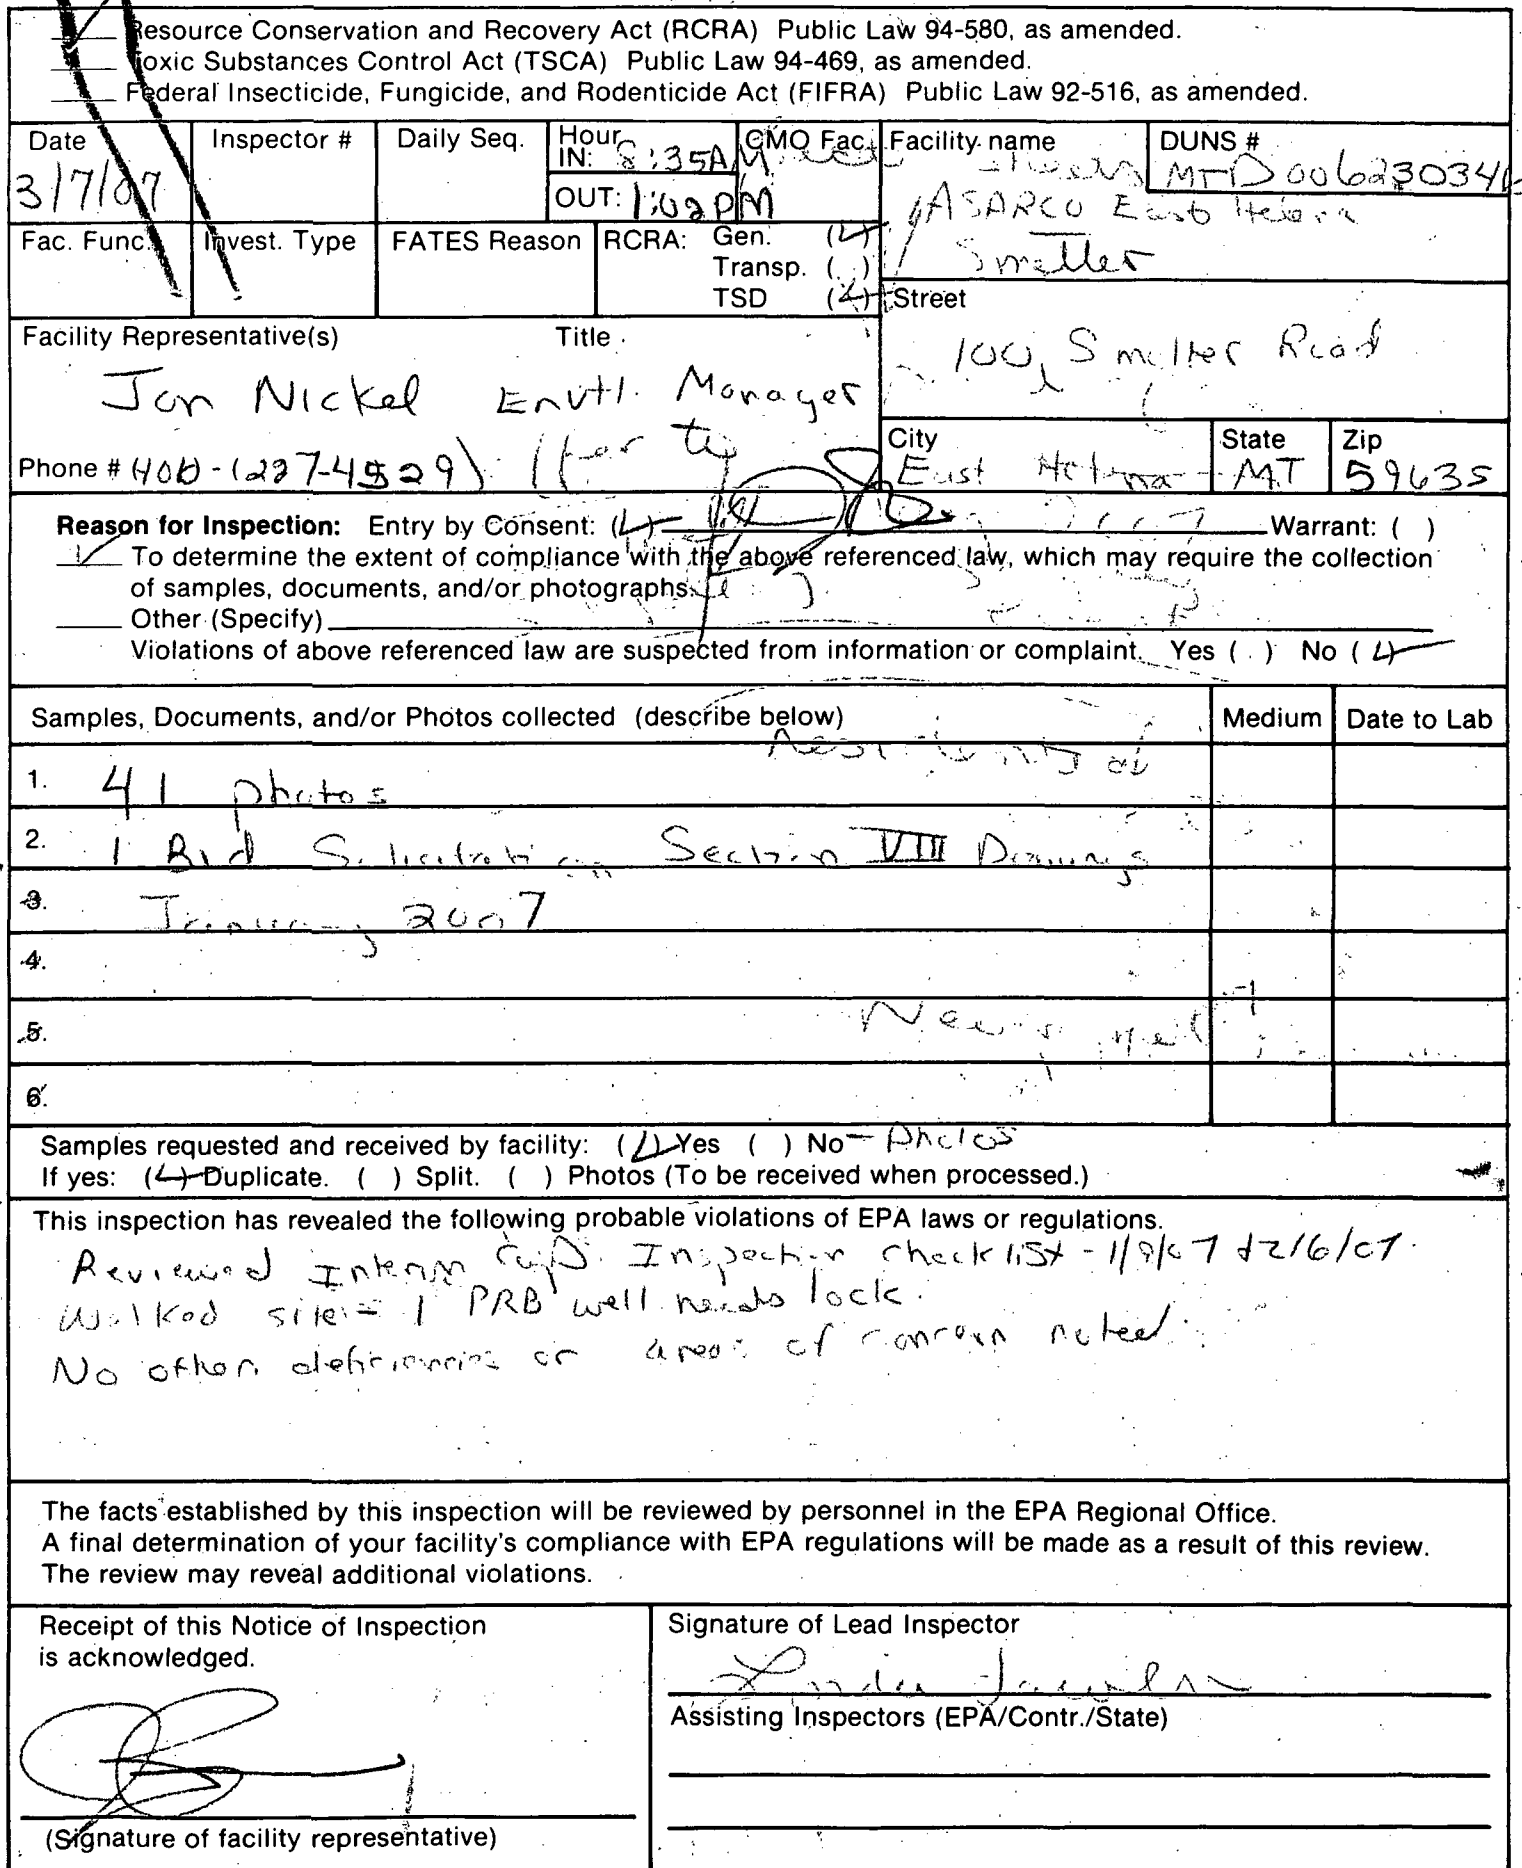 Resource Conservation and Recovery Act (RCRA) Public Law 94-580, as amended.
Toxic Substances Control Act (TSCA) Public Law 94-469, as amended.
Federal Insecticide, Fungicide, and Rodenticide Act (FIFRA) Public Law 92-516, as amended.
Date Inspector # Daily Seq. Hour IN: 8:35AM CMO Fac. Facility name DUNS #
3/7/07 OUT: 1:02PM MTD006230346
ASARCO East Helena
Smelter
Fac. Func. Invest. Type FATES Reason RCRA: Gen. (✓)
Transp. ( )
TSD (✓)
Street
100 Smelter Road
Facility Representative(s) Title
Jon Nickel Envtl. Manager
Phone # 406-(227-4529)
City State Zip
East Helena MT 59635
Reason for Inspection: Entry by Consent: (✓) Warrant: ( )
✓ To determine the extent of compliance with the above referenced law, which may require the collection
of samples, documents, and/or photographs.
Other (Specify)
Violations of above referenced law are suspected from information or complaint. Yes ( ) No (✓)
Samples, Documents, and/or Photos collected (describe below) Medium Date to Lab
1. 41 photos
2. 1 Bid Solicitation Section VIII Drawings
3. January 2007
4.
5.
6.
Samples requested and received by facility: (✓) Yes ( ) No - Photos
If yes: (✓) Duplicate. ( ) Split. ( ) Photos (To be received when processed.)
This inspection has revealed the following probable violations of EPA laws or regulations.
Reviewed Interim Cap Inspection checklist - 1/9/07 & 2/6/07.
Walked site - 1 PRB well needs lock.
No other deficiencies or areas of concern noted.
The facts established by this inspection will be reviewed by personnel in the EPA Regional Office.
A final determination of your facility's compliance with EPA regulations will be made as a result of this review.
The review may reveal additional violations.
Receipt of this Notice of Inspection
is acknowledged.
(Signature of facility representative)
Signature of Lead Inspector
Linda Jacobson
Assisting Inspectors (EPA/Contr./State)